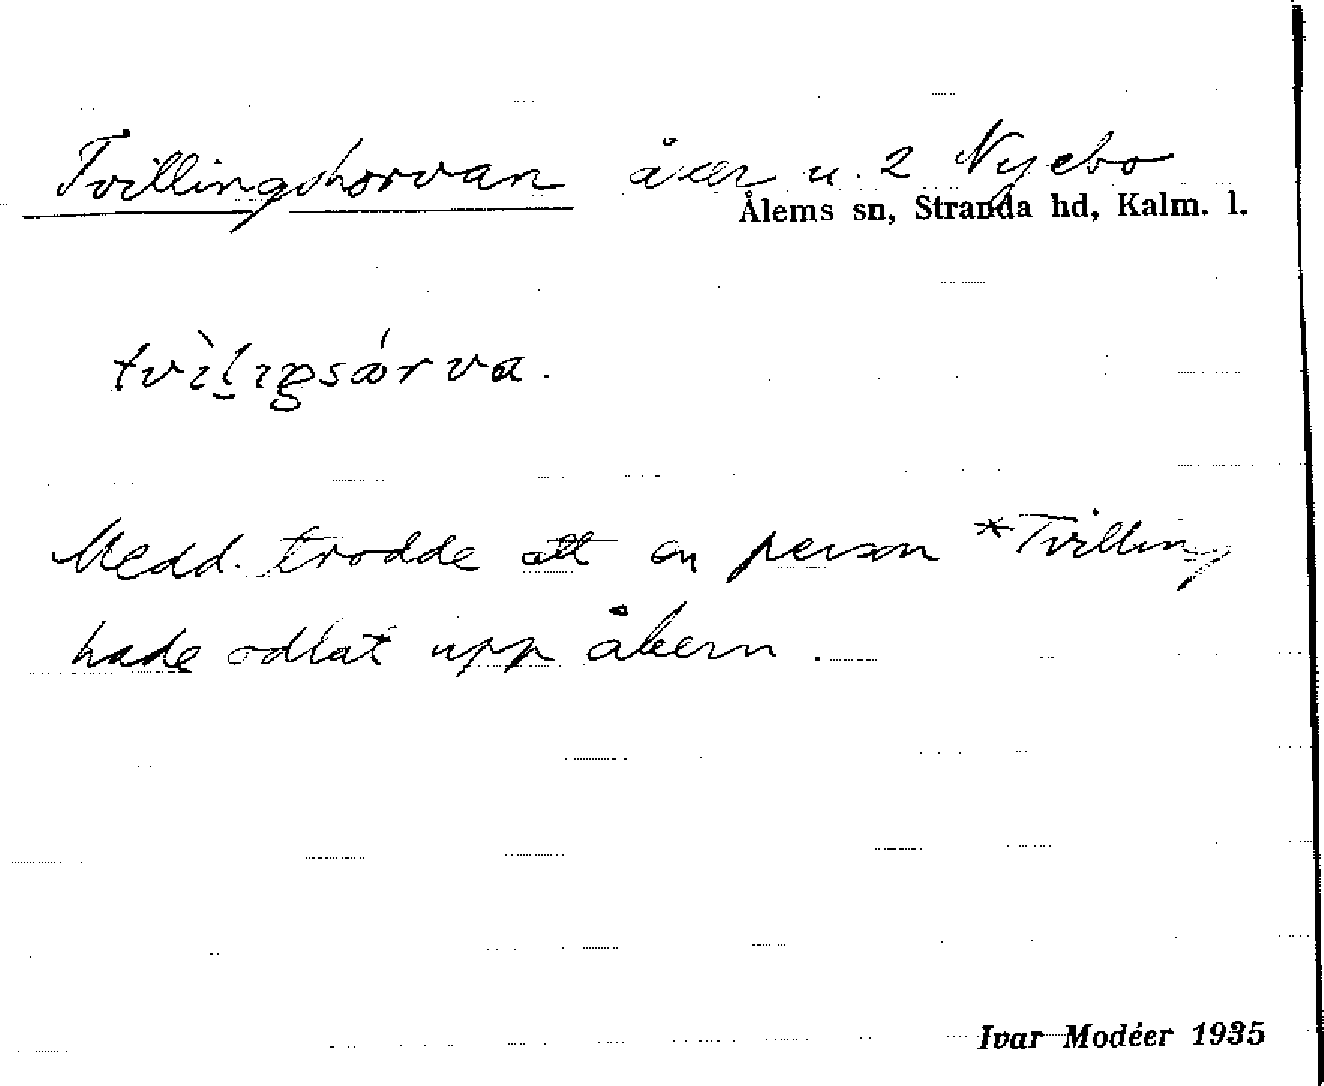 Tvillingshorvan åker u. 2 Nyebo
Ålems sn, Stranda hd, Kalm. l.
Medd. trodde att en person *Tvilling
hade odlat upp åkern.
Ivar Modéer 1935